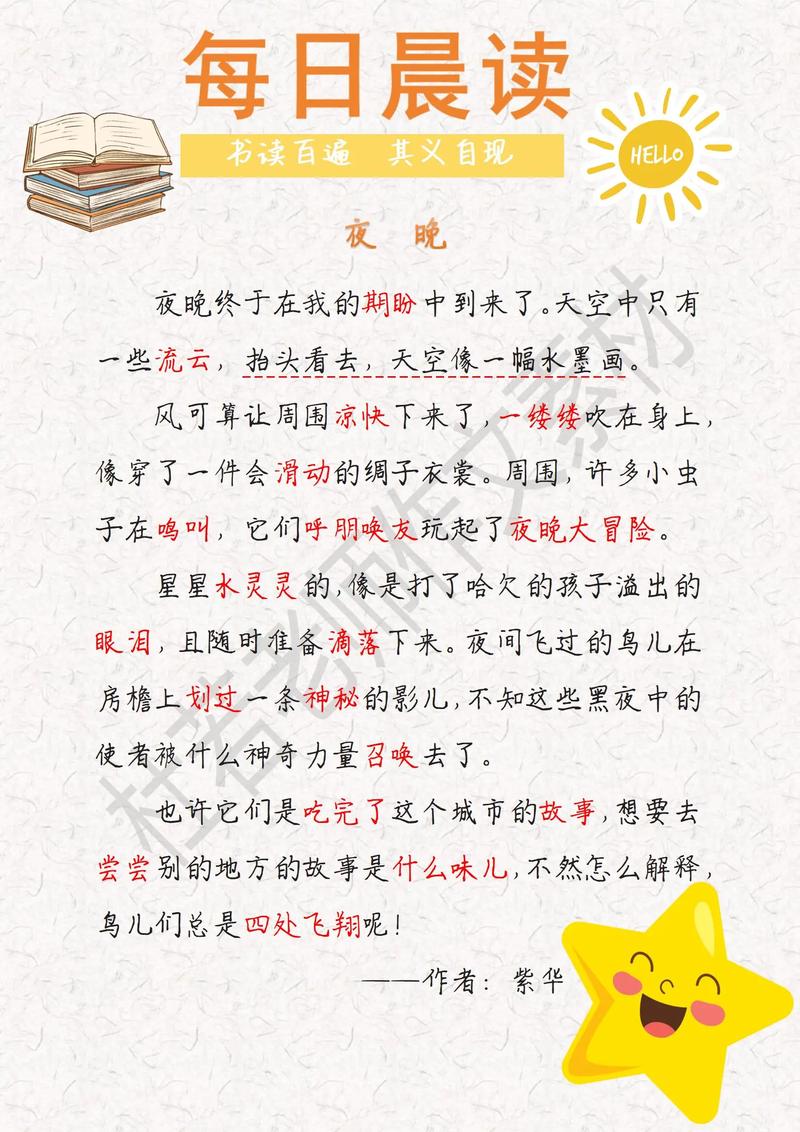 每日晨读
书读百遍 其义自现
HELLO
夜 晚
夜晚终于在我的期盼中到来了。天空中只有
一些流云，抬头看去，天空像一幅水墨画。
风可算让周围凉快下来了，一缕缕吹在身上，
像穿了一件会滑动的绸子衣裳。周围，许多小虫
子在鸣叫，它们呼朋唤友玩起了夜晚大冒险。
星星水灵灵的，像是打了哈欠的孩子溢出的
眼泪，且随时准备滴落下来。夜间飞过的鸟儿在
房檐上划过一条神秘的影儿，不知这些黑夜中的
使者被什么神奇力量召唤去了。
也许它们是吃完了这个城市的故事，想要去
尝尝别的地方的故事是什么味儿，不然怎么解释，
鸟儿们总是四处飞翔呢！
——作者：紫华
杜若老师作文素材